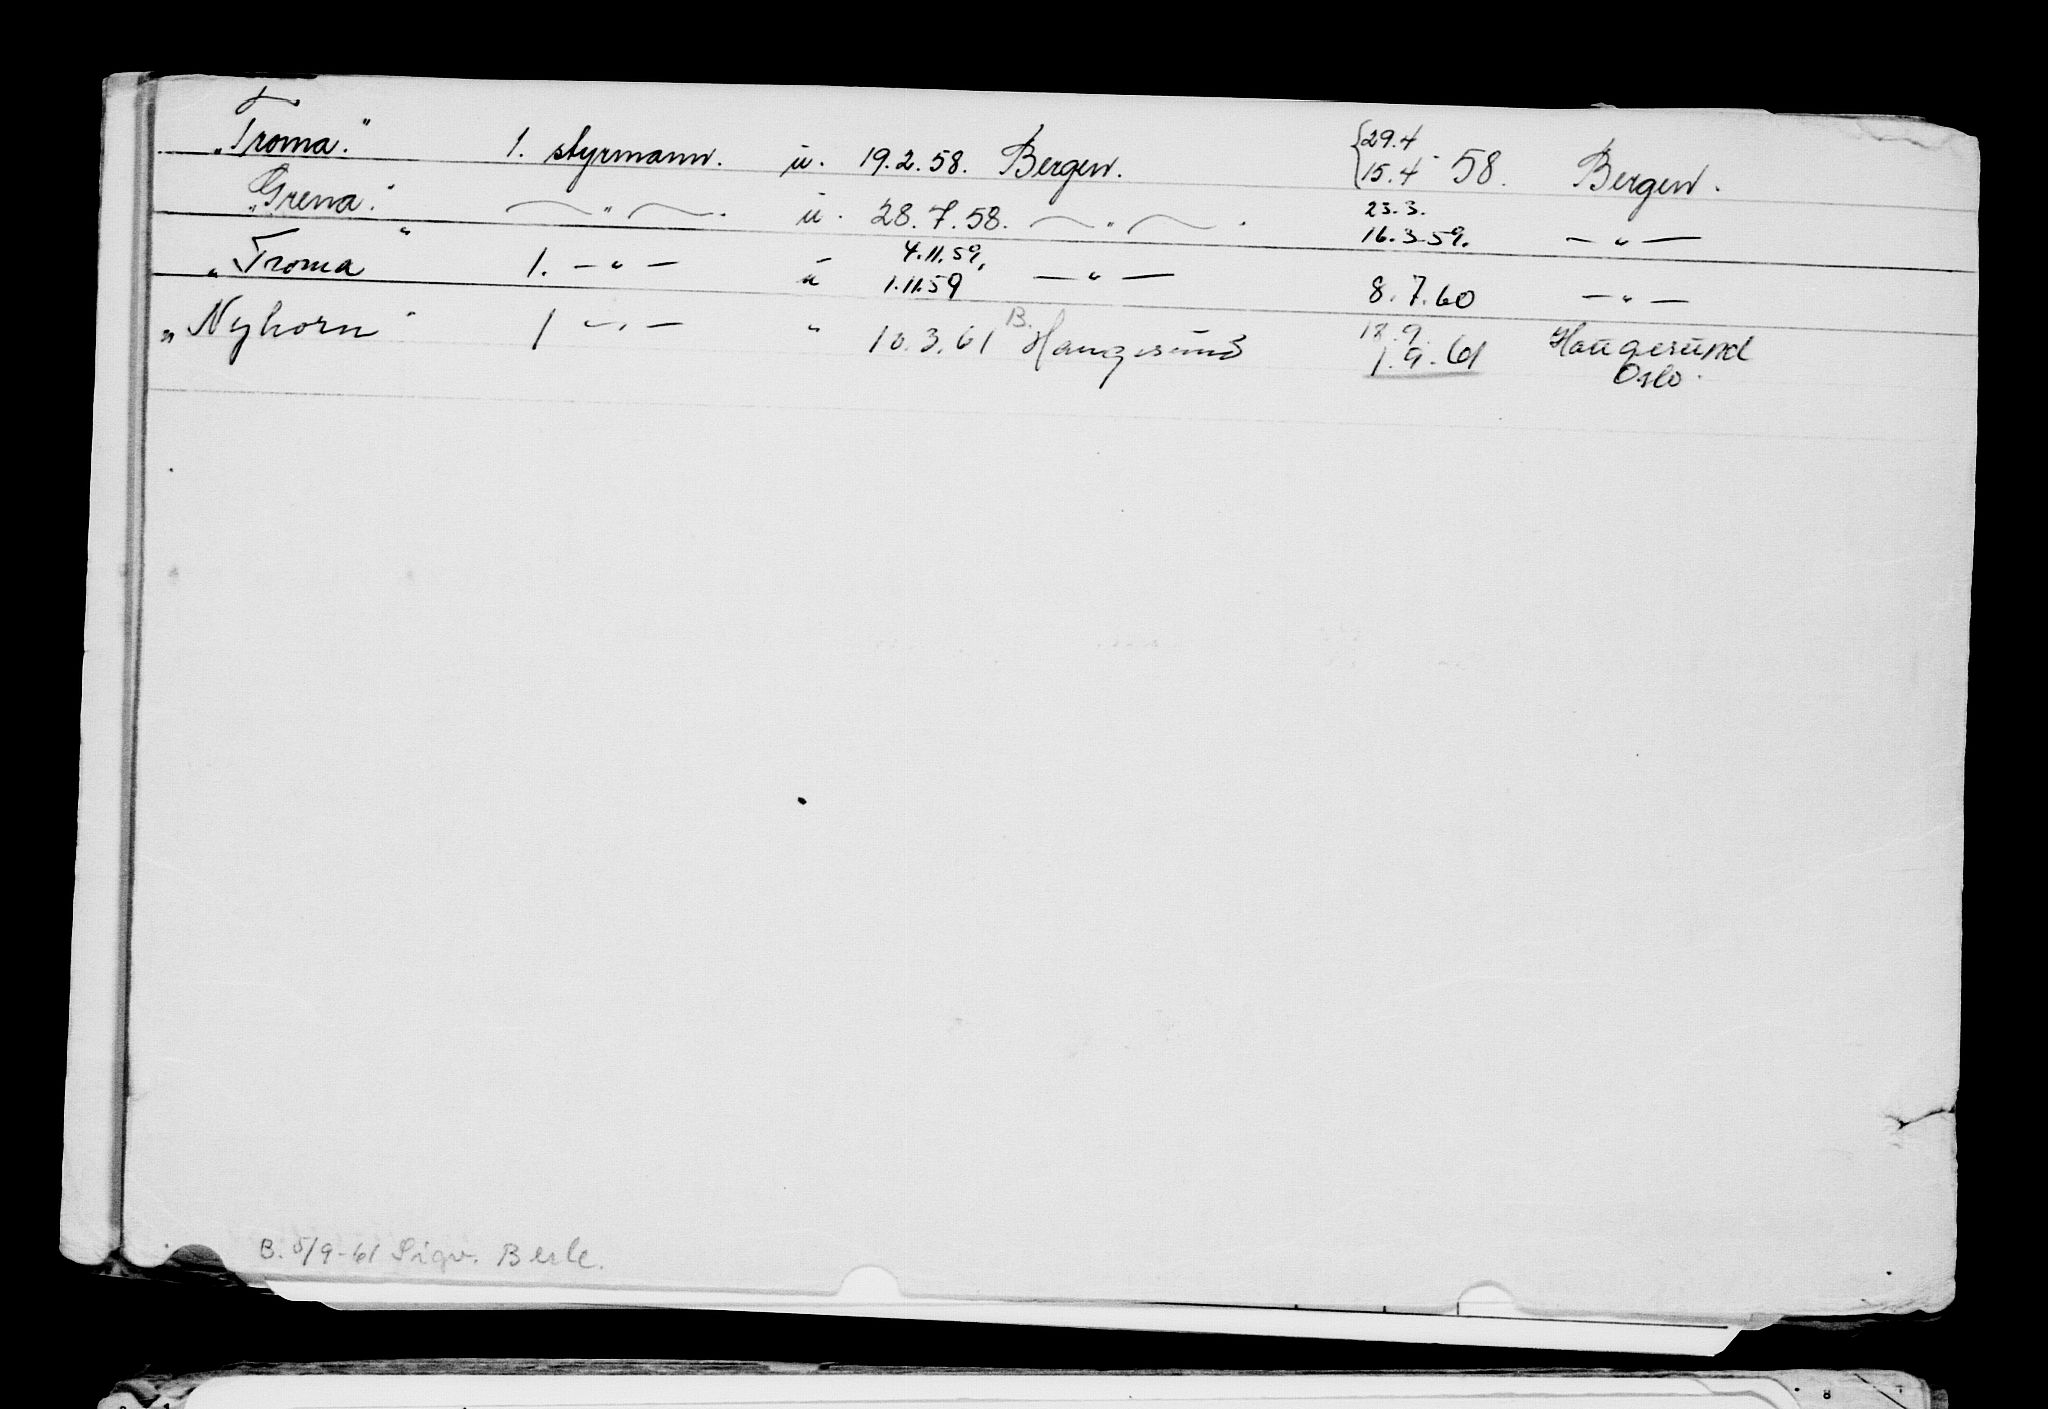 „Troma." 1. styrmann. u. 19.2.58. Bergen. {29.4 15.4 - 58. Bergen.
„Grena." — " — . u. 28.7.58. — " — . 23.3. 16.3.59. — " —
„Troma" 1. — " — u 4.11.59, 1.11.59 — " — 8.7.60 — " —
„Nyhorn" 1 — " — " 10.3.61 B. Haugesund 18.9. 1.9.61 Haugesund Oslo.
B. 5/9-61 Sigv.